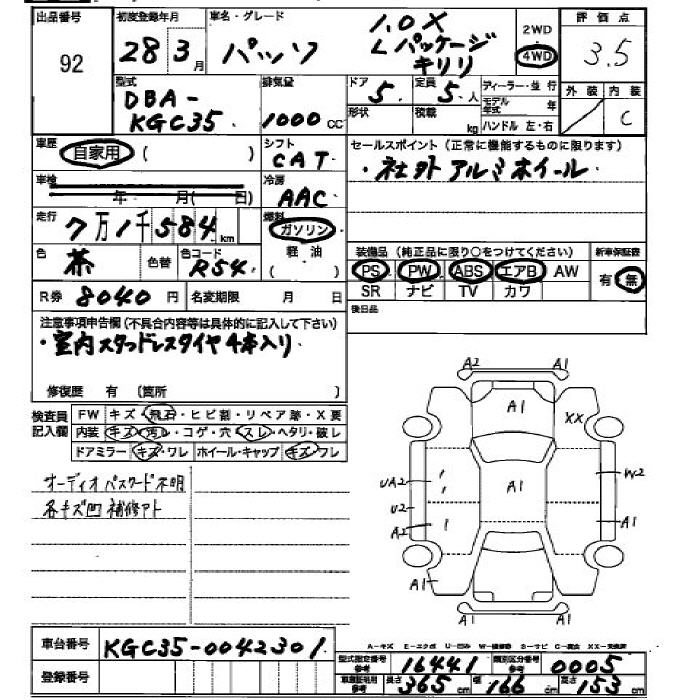 出品番号 初度登録年月 車名・グレード 評価点
92 28 3月 パッソ 1.0X Lパッケージ キリリ 2WD 4WD 3.5
型式 排気量 ドア 定員 ディーラー・並行 外装 内装
DBA-KGC35 1000cc 5 5人 モデル年式 年 C
形状 積載 kg ハンドル 左・右
車歴 シフト セールスポイント(正常に機能するものに限ります)
自家用 ( ) CAT ・社外アルミホイール
車検 年 月( 日) 冷房 AAC
走行 7万1千584km 燃料 ガソリン
色 茶 色替 色コード R54 軽油 ( )
装備品(純正品に限り○をつけてください) 新車保証書
PS PW ABS エアB AW 有・無
SR ナビ TV カワ
R券 8040円 名変期限 月 日 後日品
注意事項申告欄(不具合内容等は具体的に記入して下さい)
・室内スタッドレスタイヤ4本入り
修復歴 有 〔箇所 〕
検査員記入欄 FW キズ・飛石・ヒビ割・リペア跡・X要
内装 キズ・汚レ・コゲ・穴・スレ・ヘタリ・破レ
ドアミラー キズ・ワレ ホイール・キャップ キズ・ワレ
オーディオパスワード不明
各キズ凹 補修アト
A2 A1
A1 XX
UA2 A1 W2
U2
A2 A1
A1
A1 A1
車台番号 KGC35-0042301
A-キズ E-エクボ U-凹ミ S-サビ
登録番号 型式指定番号参考 16441 類別区分番号参考 0005
長さ 365cm 幅 166cm 高さ 153cm